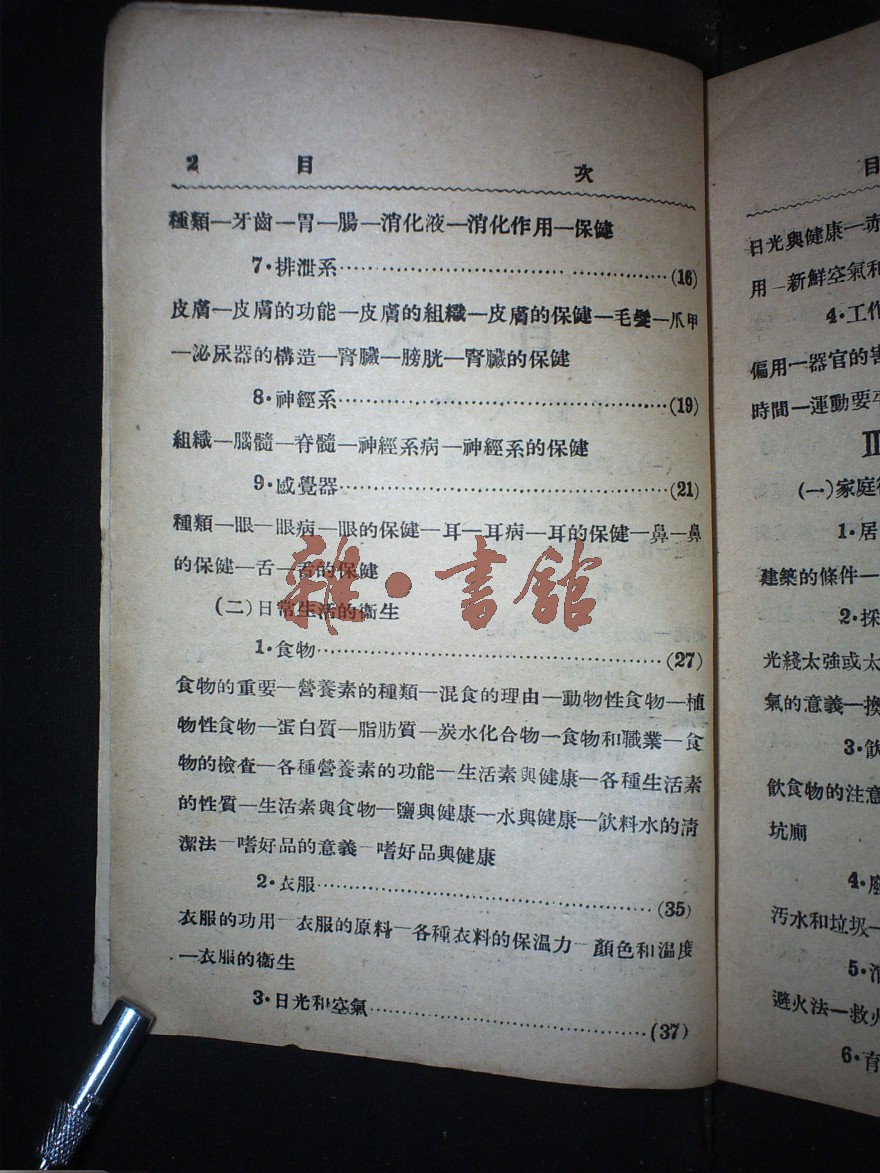 2 目 次
種類—牙齒—胃—腸—消化液—消化作用—保健
7·排泄系……………………………(16)
皮膚—皮膚的功能—皮膚的組織—皮膚的保健—毛髮—爪甲
—泌尿器的構造—腎臟—膀胱—腎臟的保健
8·神經系……………………………(19)
組織—腦髓—脊髓—神經系病—神經系的保健
9·感覺器……………………………(21)
種類—眼—眼病—眼的保健—耳—耳病—耳的保健—鼻—鼻
的保健—舌—舌的保健
雜·書館
(二)日常生活的衞生
1·食物……………………………(27)
食物的重要—營養素的種類—混食的理由—動物性食物—植
物性食物—蛋白質—脂肪質—炭水化合物—食物和職業—食
物的檢查—各種營養素的功能—生活素與健康—各種生活素
的性質—生活素與食物—鹽與健康—水與健康—飲料水的淸
潔法—嗜好品的意義—嗜好品與健康
2·衣服……………………………(35)
衣服的功用—衣服的原料—各種衣料的保温力—顏色和温度
—衣服的衞生
3·日光和空氣……………………………(37)
目
日光與健康—赤
用—新鮮空氣和
4·工作
偏用—器官的害
時間—運動要平
II
(一)家庭
1·居
建築的條件—
2·採
光綫太強或太
氣的意義—換
3·飲
飲食物的注意
坑廁
4·
汚水和垃圾—
5·消
避火法—救火
6·育